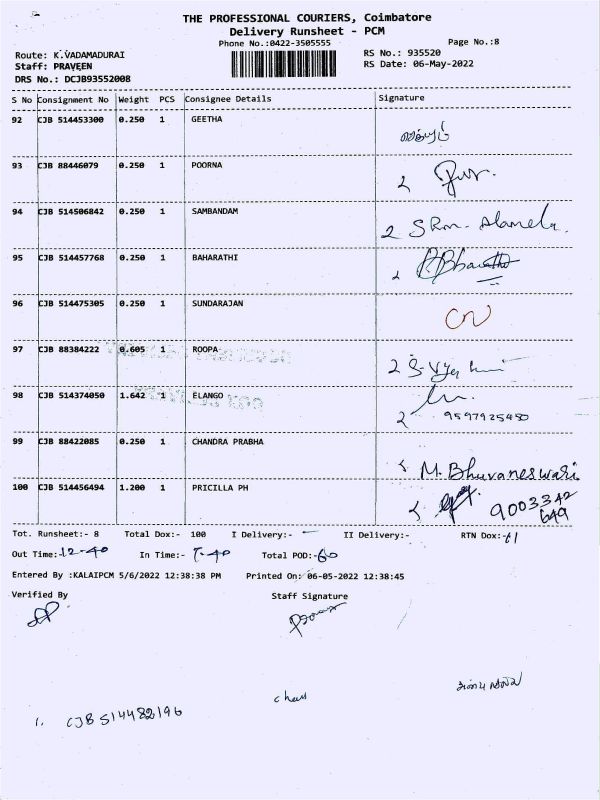 THE PROFESSIONAL COURIERS, Coimbatore
Delivery Runsheet - PCM
Phone No.:0422-3505555
Page No.:8
Route: K.VADAMADURAI
RS No.: 935520
Staff: PRAVEEN
RS Date: 06-May-2022
DRS No.: DCJB93552008
S No Consignment No Weight PCS Consignee Details Signature
92 CJB 514453300 0.250 1 GEETHA
93 CJB 88446079 0.250 1 POORNA
94 CJB 514506842 0.250 1 SAMBANDAM
95 CJB 514457768 0.250 1 BAHARATHI
96 CJB 514475305 0.250 1 SUNDARAJAN
97 CJB 88384222 0.605 1 ROOPA
98 CJB 514374050 1.642 1 ELANGO
9597925480
99 CJB 88422085 0.250 1 CHANDRA PRABHA M. Bhuvaneswari
100 CJB 514456494 1.200 1 PRICILLA PH 9003342
649
Tot. Runsheet:- 8 Total Dox:- 100 I Delivery:- II Delivery:- RTN Dox:-
Out Time:-12-40 In Time:- Total POD:-
Entered By :KALAIPCM 5/6/2022 12:38:38 PM Printed On: 06-05-2022 12:38:45
Verified By Staff Signature
1. CJB 514482196